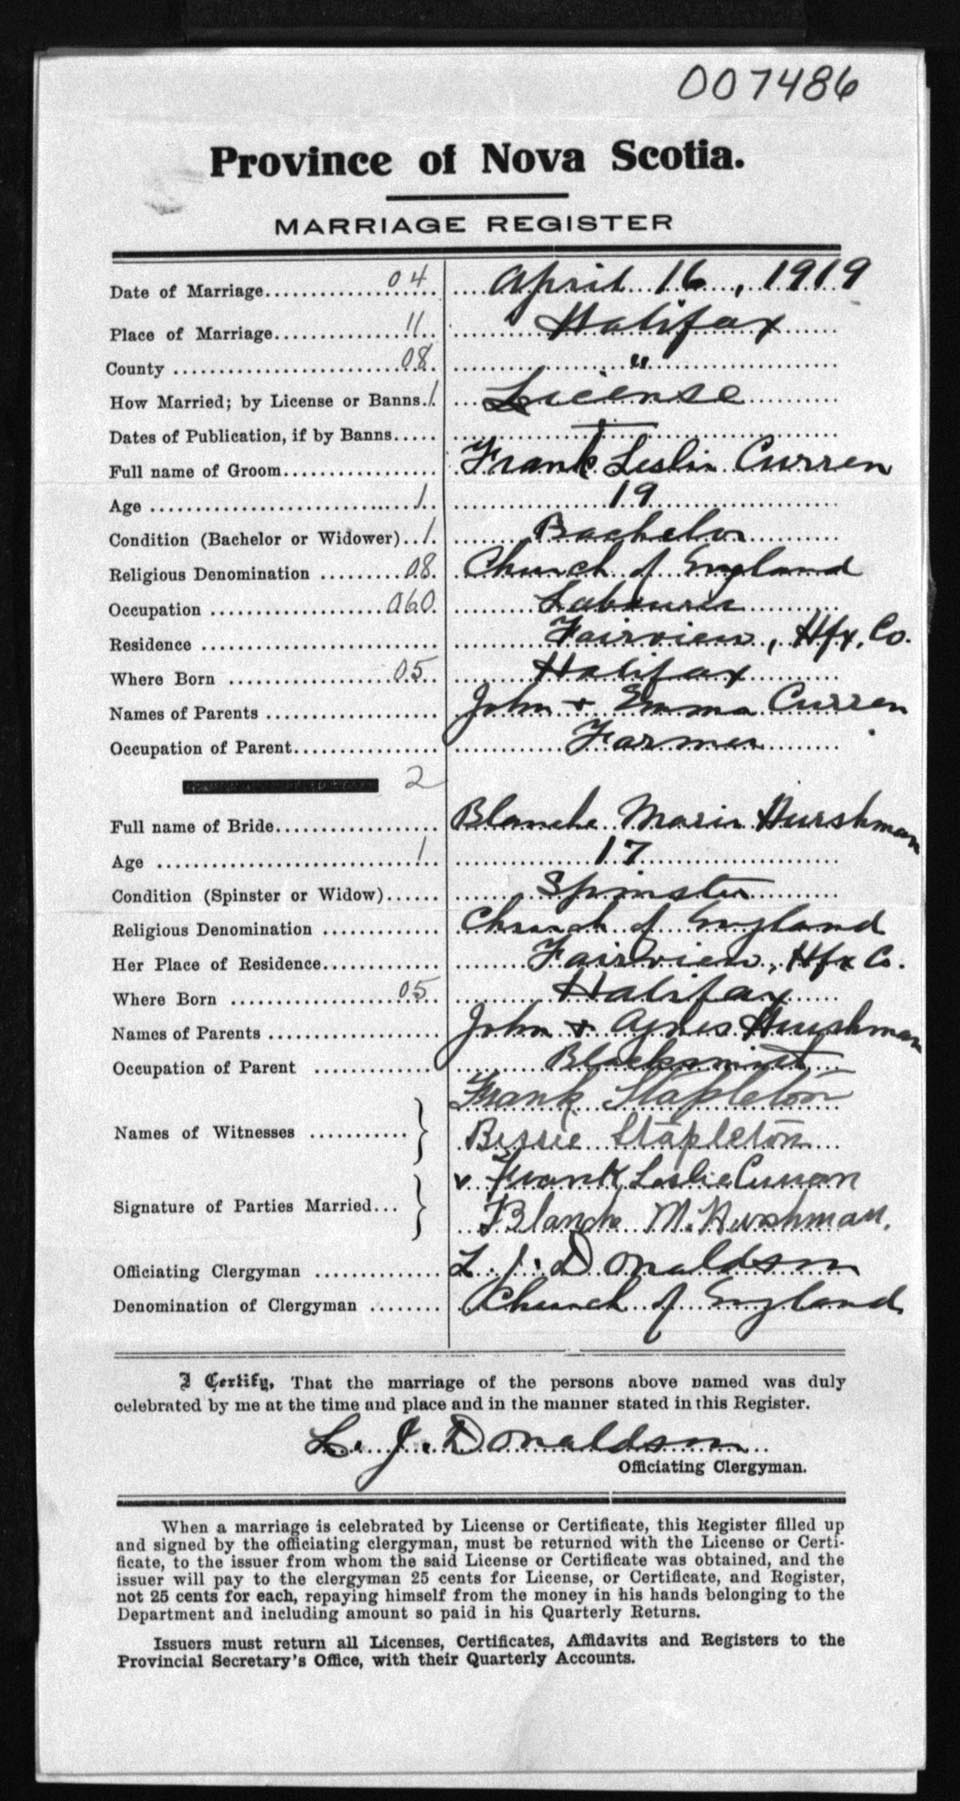 007486
Province of Nova Scotia.
MARRIAGE REGISTER
Date of Marriage 04 April 16, 1919
Place of Marriage 11 Halifax
County 08 "
How Married; by License or Banns. 1 License
Dates of Publication, if by Banns
Full name of Groom Frank Leslie Curren
Age 1 19
Condition (Bachelor or Widower) 1. Bachelor
Religious Denomination 08. Church of England
Occupation 060 Labourer
Residence Fairview, Hfx. Co.
Where Born 05 Halifax
Names of Parents John + Emma Curren
Occupation of Parent Farmer
2
Full name of Bride Blanche Marie Hurshman
Age 1 17
Condition (Spinster or Widow) Spinster
Religious Denomination Church of England
Her Place of Residence Fairview, Hfx Co.
Where Born 05 Halifax
Names of Parents John + Agnes Hurshman
Occupation of Parent Blacksmith
Frank Stapleton
Names of Witnesses Bessie Stapleton
Frank Leslie Curran
Signature of Parties Married Blanch M. Hurshman.
Officiating Clergyman L. J. Donaldson
Denomination of Clergyman Church of England
I Certify, That the marriage of the persons above named was duly
celebrated by me at the time and place and in the manner stated in this Register.
L. J. Donaldson
Officiating Clergyman.
When a marriage is celebrated by License or Certificate, this Register filled up
and signed by the officiating clergyman, must be returned with the License or Certi-
ficate, to the issuer from whom the said License or Certificate was obtained, and the
issuer will pay to the clergyman 25 cents for License, or Certificate, and Register,
not 25 cents for each, repaying himself from the money in his hands belonging to the
Department and including amount so paid in his Quarterly Returns.
Issuers must return all Licenses, Certificates, Affidavits and Registers to the
Provincial Secretary's Office, with their Quarterly Accounts.